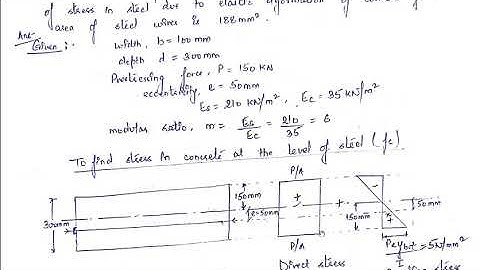 of stress in steel due to elastic deformation of concrete if
area of steel wires is 188mm².
Ans-
Given:-
width, b = 100mm
depth d = 300mm
Prestressing force, P = 150 KN
eccentricity, e = 50mm
Es = 210 KN/m², Ec = 35 KN/m²
modular ratio, m = Es/Ec = 210/35 = 6
To find stress in concrete at the level of steel (fc)
P/A
300mm
150mm
e=50mm
+
+
-
+
150mm
50mm
P/A
Pe ybot/I = 5N/mm²
Direct stress
stress